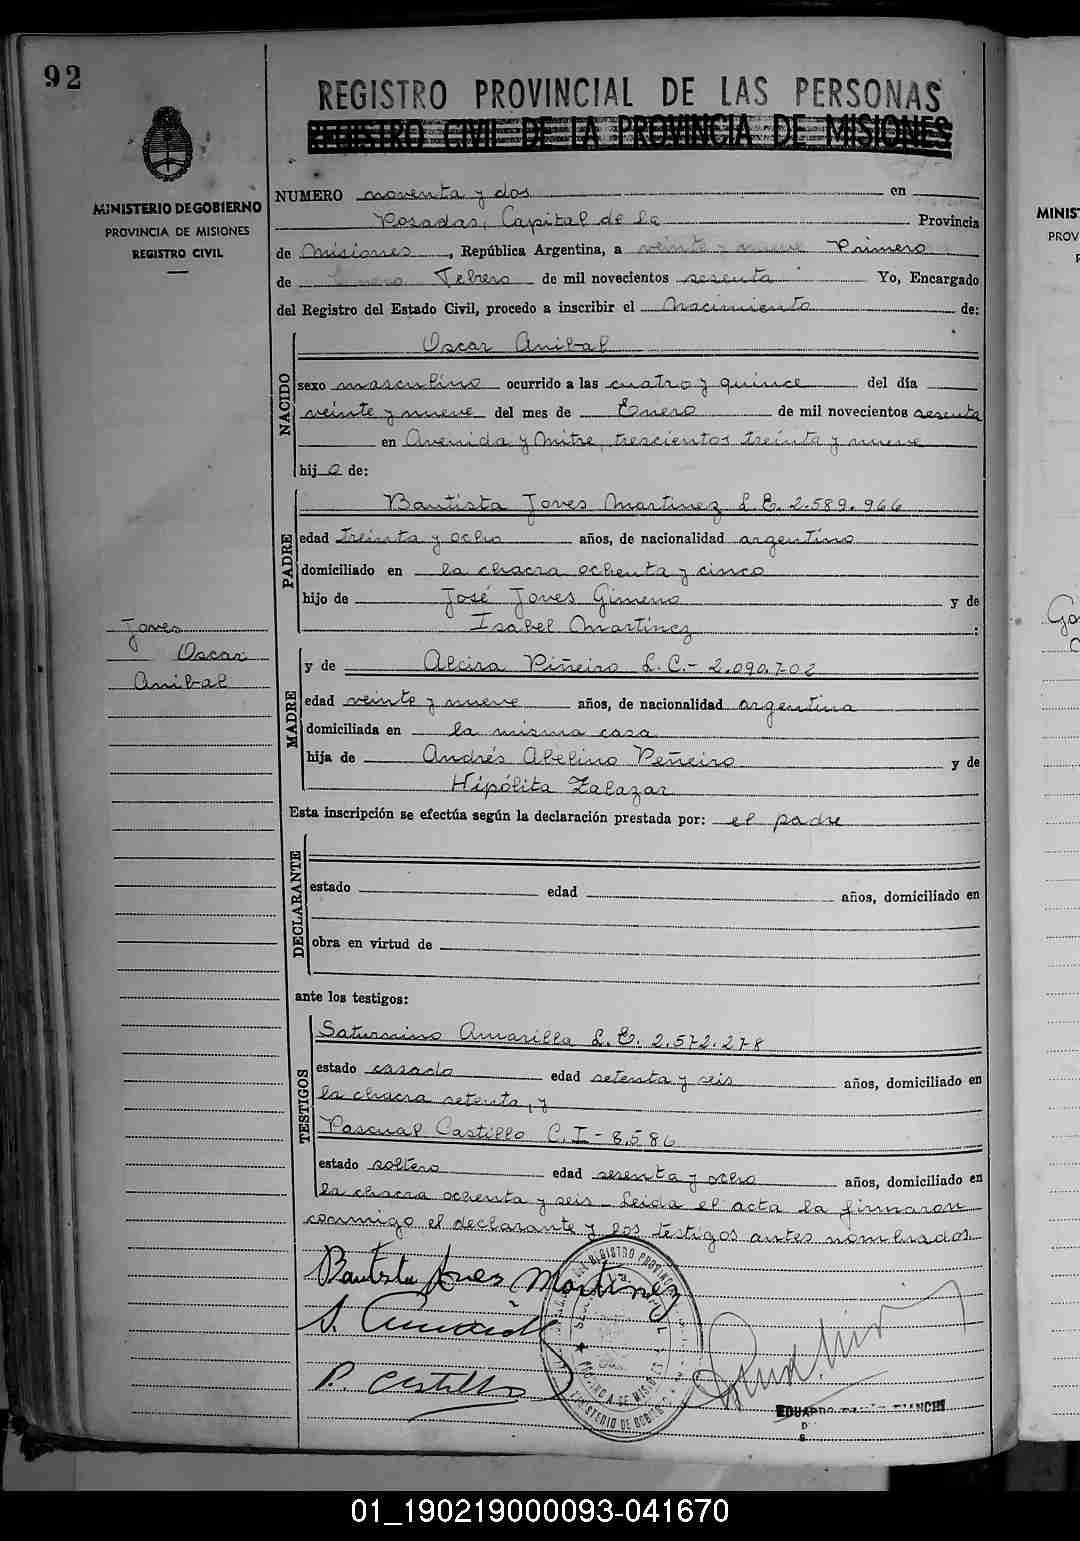 92
REGISTRO PROVINCIAL DE LAS PERSONAS
REGISTRO CIVIL DE LA PROVINCIA DE MISIONES
MINISTERIO DE GOBIERNO
PROVINCIA DE MISIONES
REGISTRO CIVIL
NUMERO noventa y dos en
Posadas, Capital de la Provincia
de Misiones, República Argentina, a veinte y nueve Primero
de Enero Febrero de mil novecientos sesenta Yo, Encargado
del Registro del Estado Civil, procedo a inscribir el Nacimiento de:
NACIDO
Oscar Anibal
sexo masculino ocurrido a las cuatro y quince del día
veinte y nueve del mes de Enero de mil novecientos sesenta
en Avenida y Mitre, trescientos treinta y nueve
hijo de:
PADRE
Bautista Joves Martinez L.E. 2.589.966
edad treinta y ocho años, de nacionalidad argentino
domiciliado en la chacra ochenta y cinco
hijo de José Joves Gimeno y de
Isabel Martínez :
Joves
Oscar
Anibal
MADRE
y de Alcira Piñeiro L.C.- 2.090.702
edad veinte y nueve años, de nacionalidad argentina
domiciliada en la misma casa
hija de Andrés Abelino Peñeiro y de
Hipólita Zalazar
Esta inscripción se efectúa según la declaración prestada por: el padre
DECLARANTE
estado edad años, domiciliado en
obra en virtud de
ante los testigos:
TESTIGOS
Saturnino Amarilla L.E. 2.572.278
estado casado edad setenta y seis años, domiciliado en
la chacra setenta, y
Pascual Castillo C.I - 8.586
estado soltero edad sesenta y ocho años, domiciliado en
la chacra ochenta y seis - Leída el acta la firmaron
conmigo el declarante y los testigos antes nombrados.
Bautista Joves Martinez
S. Amarilla
P. Castillo
PROVINCIA DE MISIONES
MINISTERIO DE GOBIERNO
EDUARDO BIANCHI
MINIS
PROV
01_190219000093-041670